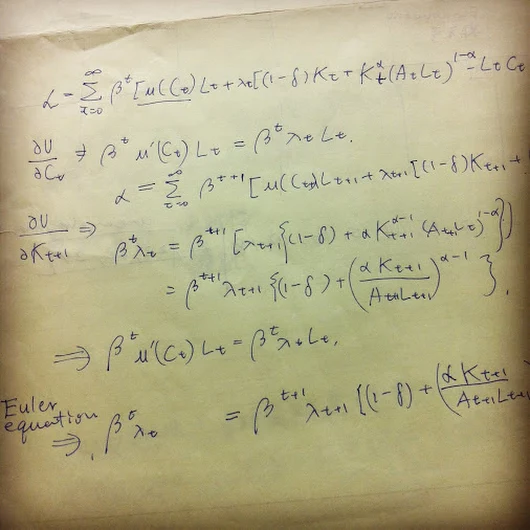 ℒ = Σ_{t=0}^{∞} β^t [u(C_t) L_t + λ_t [(1-δ) K_t + K_t^α (A_t L_t)^{1-α} - L_t C_t
∂U/∂C_t ⇒ β^t u'(C_t) L_t = β^t λ_t L_t.
ℒ = Σ_{t=0}^{∞} β^{t+1} [u(C_t) L_{t+1} + λ_{t+1} [(1-δ) K_{t+1} +
∂U/∂K_{t+1} ⇒ β^t λ_t = β^{t+1} [λ_{t+1} {(1-δ) + α K_{t+1}^{α-1} (A_{t+1} L_t)^{1-α}}]
= β^{t+1} λ_{t+1} {(1-δ) + (α K_{t+1} / A_{t+1} L_{t+1})^{α-1}},
⇒ β^t u'(C_t) L_t = β^t λ_t L_t,
Euler
equation
⇒ β^t λ_t = β^{t+1} λ_{t+1} [(1-δ) + (α K_{t+1} / A_{t+1} L_{t+1})